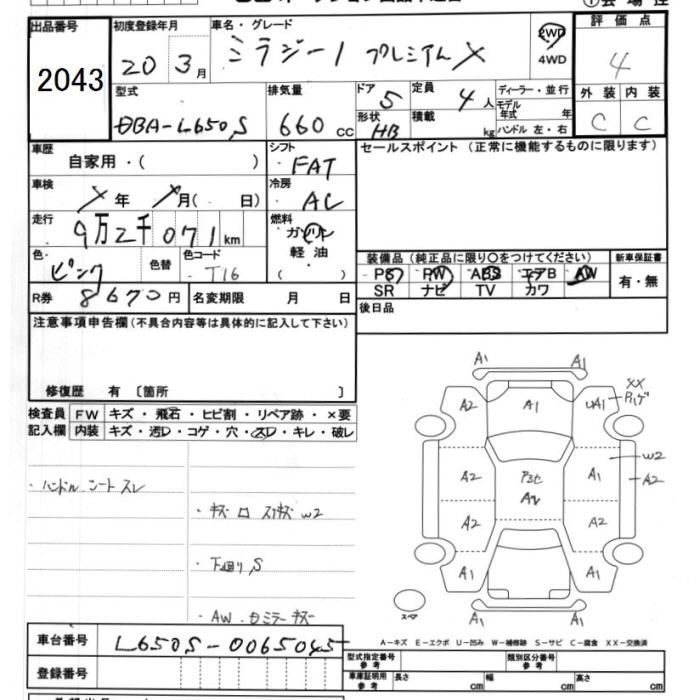 出品番号 初度登録年月 車名・グレード 評価点
2043 20 3月 ミラジーノ プレミアムX 2WD 4
4WD
外装 内装
型式 排気量 ドア 5 定員 4人 ディーラー・並行 C C
DBA-L650S 660 CC 形状 HB 積載 kg モデル年式 年
ハンドル 左・右
車歴 シフト セールスポイント (正常に機能するものに限ります)
自家用・( ) FAT
車検 冷房
X年 X月( 日) AC
走行 燃料
9万2千071km ガソリン
軽油
( )
色 ピンク 色替 色コード T16
装備品 (純正品に限り○をつけてください) 新車保証書
PS PW ABS エアB AW 有・無
SR ナビ TV カワ
R券 8670円 名変期限 月 日 後日品
注意事項申告欄(不具合内容等は具体的に記入して下さい)
修復歴 有 〔箇所 〕
検査員 FW キズ・飛石・ヒビ割・リペア跡・×要
記入欄 内装 キズ・汚レ・コゲ・穴・スレ・キレ・破レ
・ハンドル シートスレ
・下廻りS
・AW
A1 A1
A2 A1 UA1 XX
W2
A2 A1 A2
A2 A2
A1 A1
A1 A1
スペア
A-キズ E-エクボ U-凹み W-補修跡 S-サビ C-腐食 XX-交換済
車台番号 L650S-0065045
登録番号
型式指定番号 参考 類別区分番号 参考
車庫証明用 参考 長さ cm 幅 cm 高さ cm